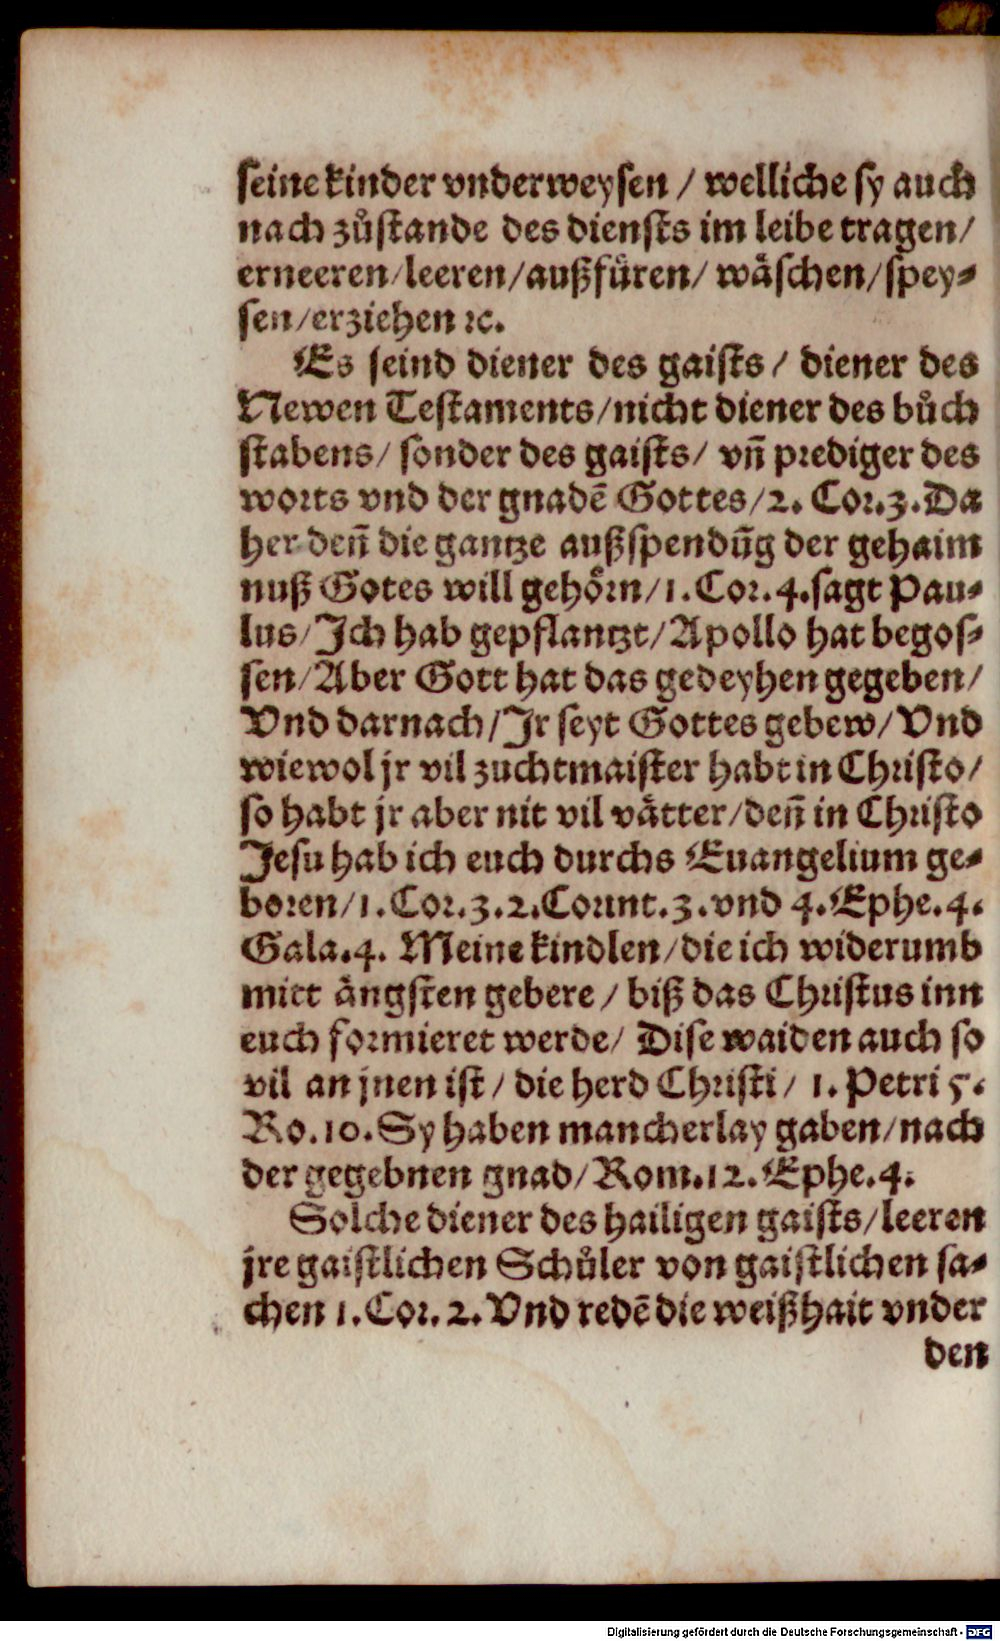 seine kinder vnderweysen / welliche sy auch
nach zůstande des diensts im leibe tragen/
erneeren/leeren/außfüren/ wäschen/spey⸗
sen/erziehen ꝛc.
Es seind diener des gaists / diener des
Newen Testaments/nicht diener des bůch
stabens/ sonder des gaists/ vn̄ prediger des
worts vnd der gnadē Gottes/2. Cor.3.Da
her den̄ die gantze außspendūg der gehaim
nuß Gotes will gehörn/1.Cor.4.sagt Pau⸗
lus/Ich hab gepflantzt/Apollo hat begos⸗
sen/Aber Gott hat das gedeyhen gegeben/
Vnd darnach/Jr seyt Gottes gebew/Vnd
wiewol jr vil zuchtmaister habt in Christo/
so habt jr aber nit vil vätter/den̄ in Christo
Jesu hab ich euch durchs Euangelium ge⸗
boren/1.Cor.3.2.Corint.3.vnd 4.Ephe.4.
Gala.4. Meine kindlen/die ich widerumb
mitt ängsten gebere / biß das Christus inn
euch formieret werde/ Dise waiden auch so
vil an jnen ist / die herd Christi/ 1. Petri 5.
Ro.10.Sy haben mancherlay gaben/nach
der gegebnen gnad/Rom.12.Ephe.4.
Solche diener des hailigen gaists/leeren
jre gaistlichen Schůler von gaistlichen sa⸗
chen 1.Cor.2.Vnd redē die weißhait vnder
den
Digitalisierung gefördert durch die Deutsche Forschungsgemeinschaft - DFG